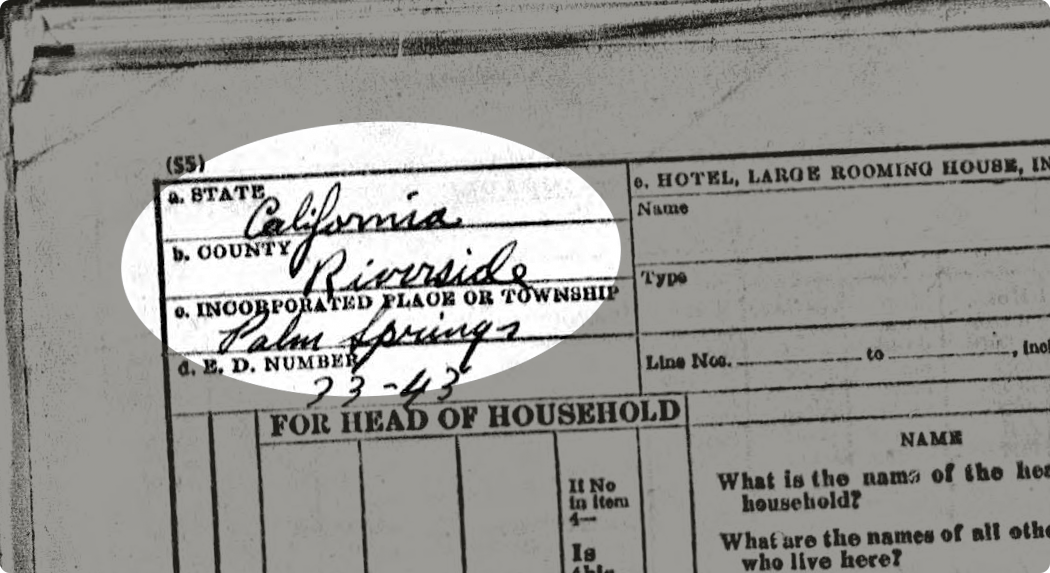 (S5)
a. STATE
California
b. COUNTY
Riverside
c. INCORPORATED PLACE OR TOWNSHIP
Palm Springs
d. E. D. NUMBER
33-43
e. HOTEL, LARGE ROOMING HOUSE, IN
Name
Type
Line Nos. to , inc
FOR HEAD OF HOUSEHOLD
If No
in item
4—
Is
this
NAME
What is the name of the hea
household?
What are the names of all othe
who live here?